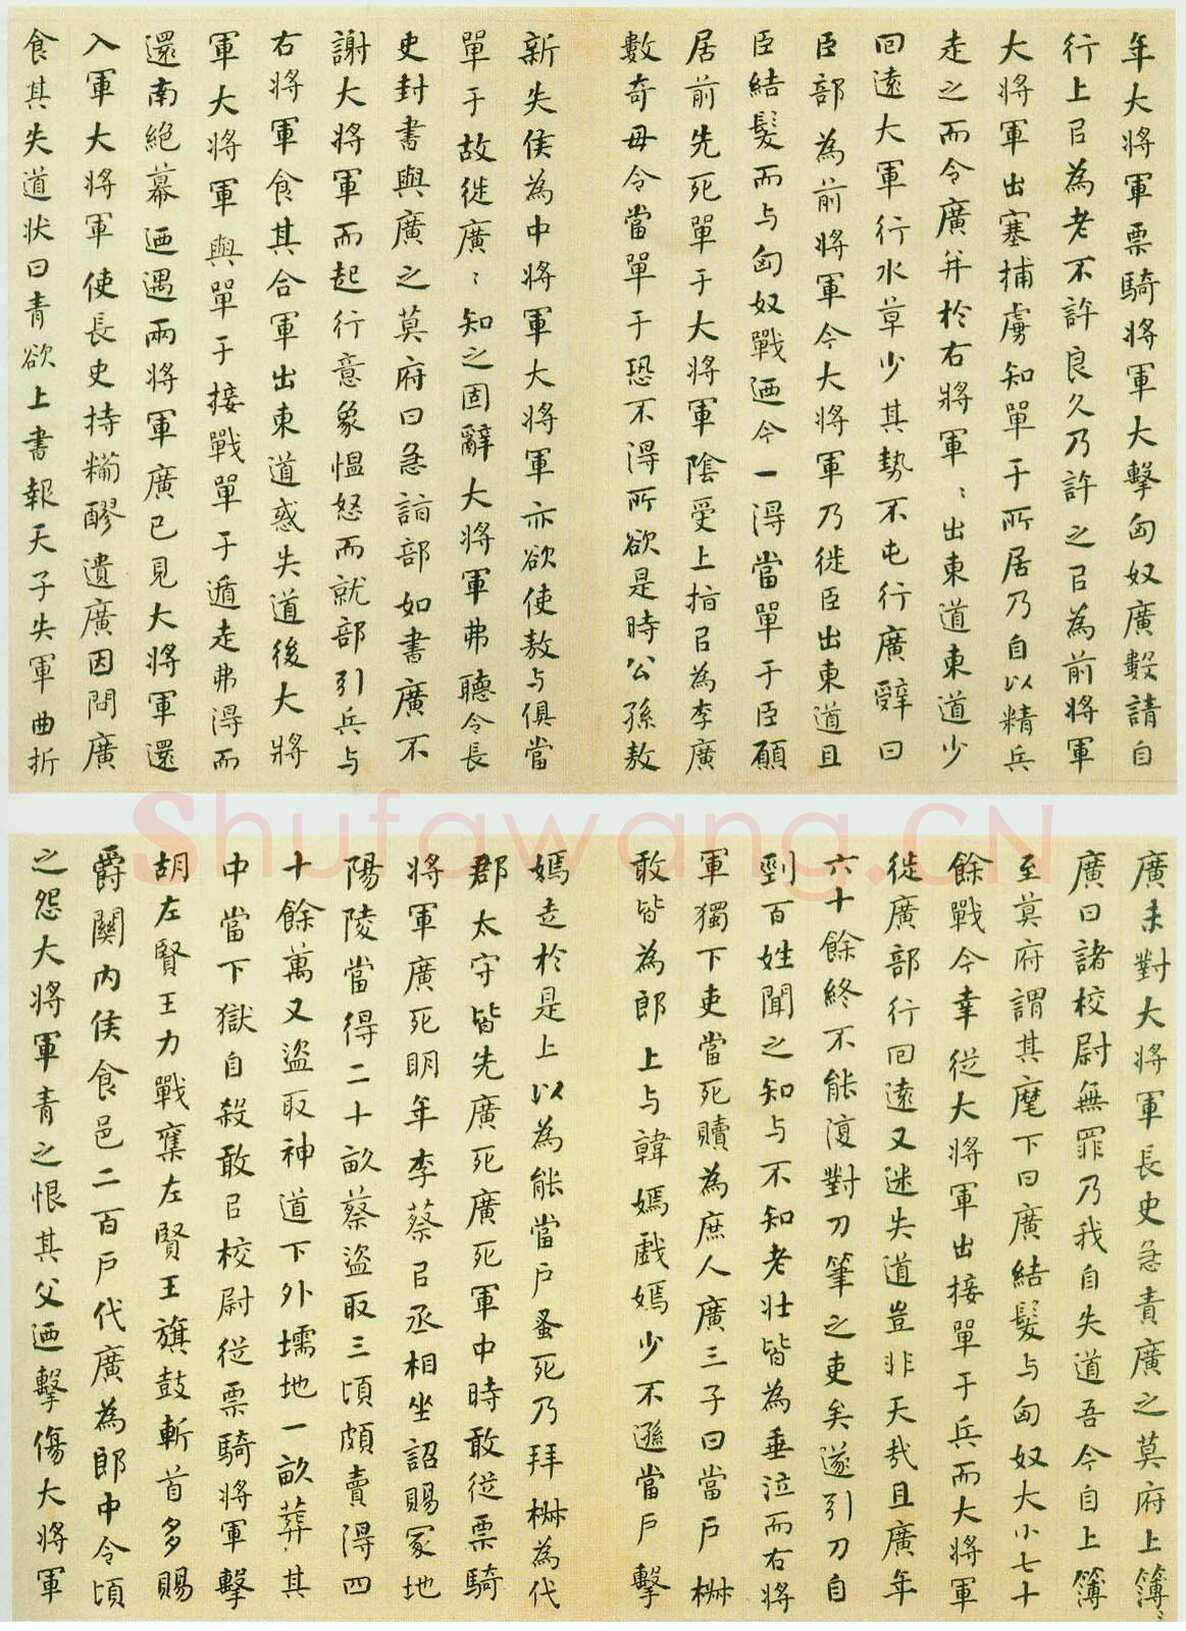 年大將軍票騎將軍大擊匈奴廣數請自
行上㠯為老不許良久乃許之㠯為前將軍
大將軍出塞捕虜知單于所居乃自以精兵
走之而令廣并於右將軍〻出東道東道少
回遠大軍行水草少其勢不屯行廣辭曰
臣部為前將軍今大將軍乃徙臣出東道且
臣結髮而与匈奴戰迺今一得當單于臣願
居前先死單于大將軍陰受上指㠯為李廣
數奇毋令當單于恐不得所欲是時公孫敖
新失侯為中將軍大將軍亦欲使敖与俱當
單于故徙廣〻知之固辭大將軍弗聽令長
史封書與廣之莫府曰急詣部如書廣不
謝大將軍而起行意象愠怒而就部引兵与
右將軍食其合軍出東道惑失道後大將
軍大將軍與單于接戰單于遁走弗得而
還南絕幕迺遇兩將軍廣已見大將軍還
入軍大將軍使長史持糒醪遺廣因問廣
食其失道狀曰青欲上書報天子失軍曲折
廣未對大將軍長史急責廣之莫府上簿〻
廣曰諸校尉無罪乃我自失道吾今自上簿
至莫府謂其麾下曰廣結髮与匈奴大小七十
餘戰今幸從大將軍出接單于兵而大將軍
徙廣部行回遠又迷失道豈非天哉且廣年
六十餘終不能復對刀筆之吏矣遂引刀自
剄百姓聞之知与不知老壯皆為垂泣而右將
軍獨下吏當死贖為庶人廣三子曰當戶椒
敢皆為郎上与韓嫣戲嫣少不遜當戶擊
嫣走於是上以為能當戶蚤死乃拜椒為代
郡太守皆先廣死廣死軍中時敢從票騎
將軍廣死明年李蔡㠯丞相坐詔賜冢地
陽陵當得二十畝蔡盜取三頃頗賣得四
十餘萬又盜取神道下外壖地一畝葬其
中當下獄自殺敢㠯校尉從票騎將軍擊
胡左賢王力戰奪左賢王旗鼓斬首多賜
爵關內侯食邑二百戶代廣為郎中令頃
之怨大將軍青之恨其父迺擊傷大將軍
Shufawang.CN